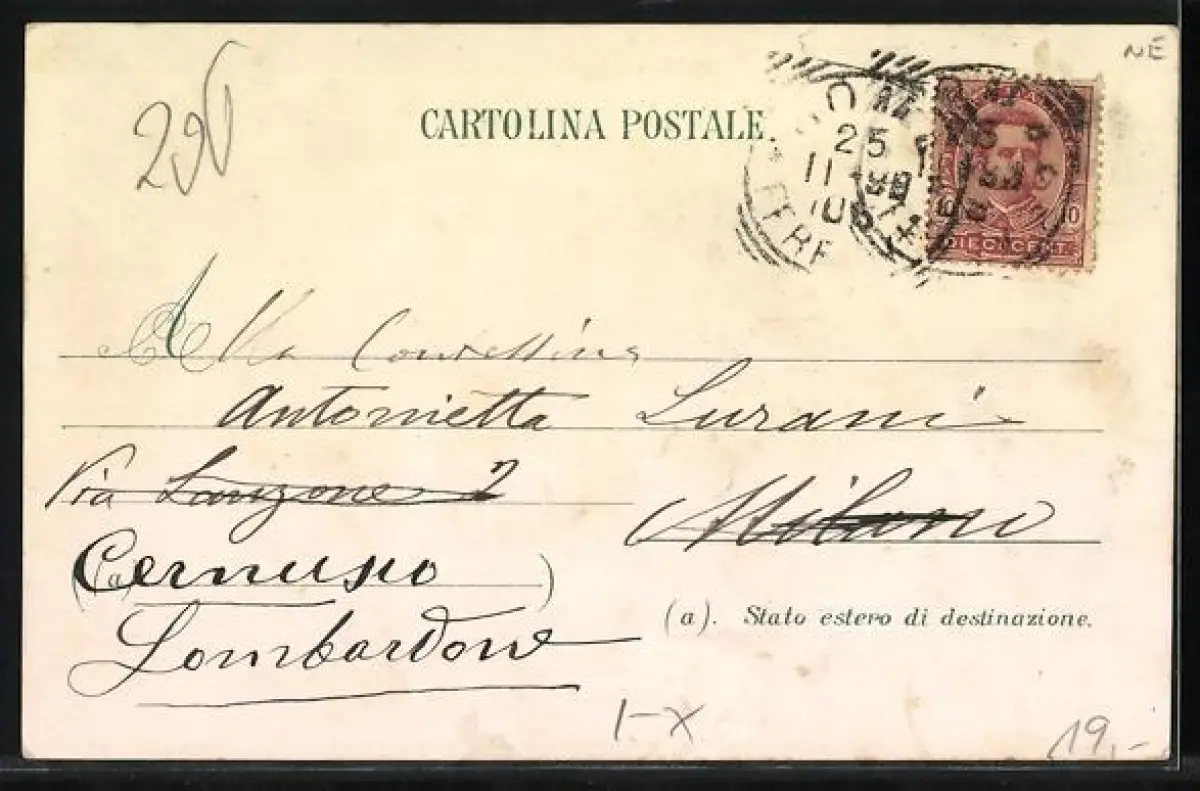 NÉ
290
CARTOLINA POSTALE
25
11 98
10
DIECI CENT.
Alla Contessina
Antonietta Lurani
Via Lanzone 2
Milano
(a) Cernusco )
Lombardone
(a). Stato estero di destinazione.
1-X
19,-